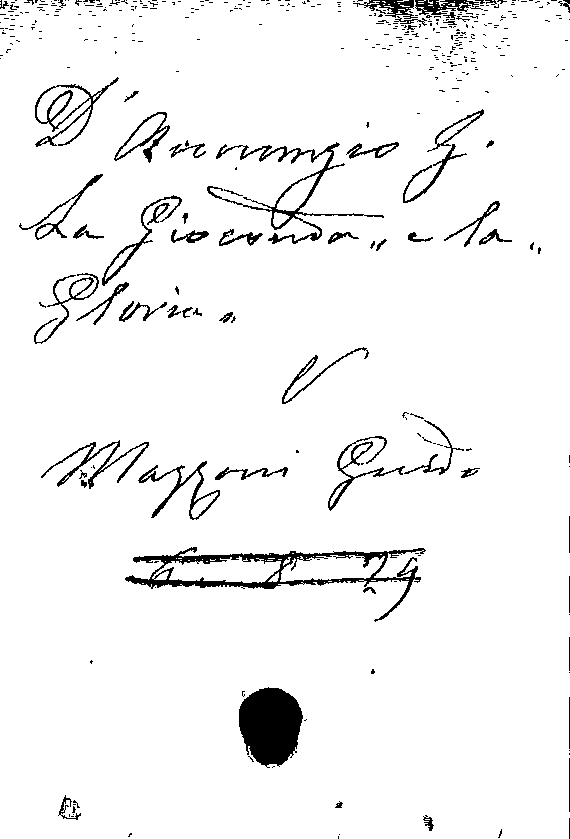 D'Annunzio G.
La Gioconda „ e la „
Gloria „
V
Mazzoni Guido
6 8 29